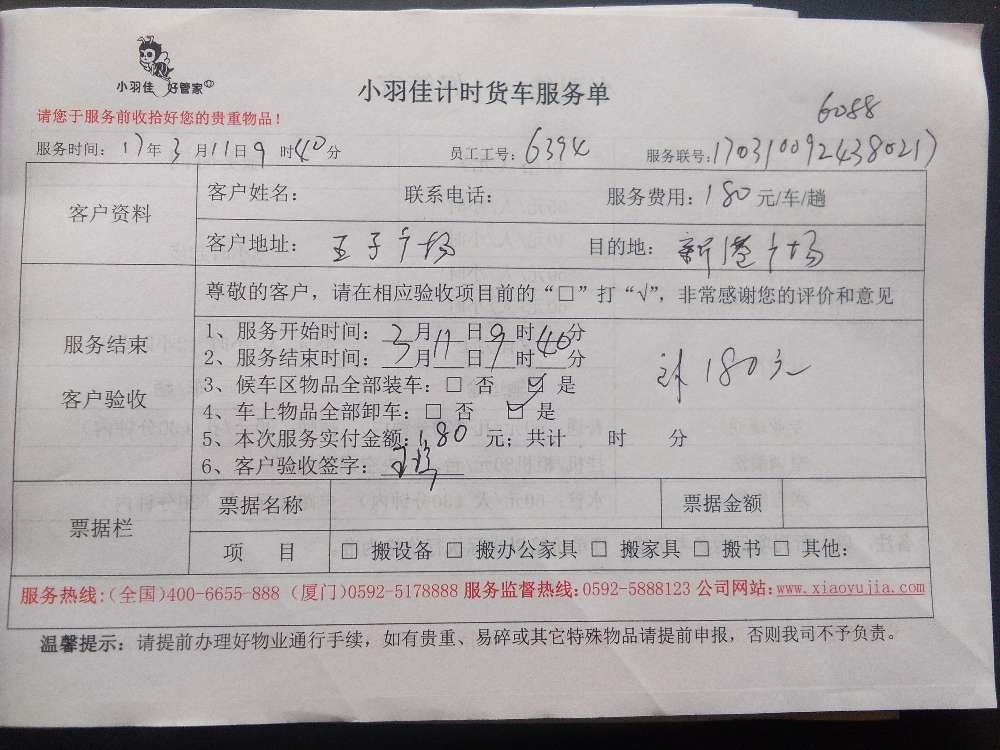 小羽佳 好管家
小羽佳计时货车服务单
6088
请您于服务前收拾好您的贵重物品！
服务时间：17年3月11日9时40分 员工工号：6394 服务联号：1703100924380217
客户资料
客户姓名： 联系电话： 服务费用：180元/车/趟
客户地址：王子广场 目的地：新港广场
服务结束
客户验收
尊敬的客户，请在相应验收项目前的“□”打“√”，非常感谢您的评价和意见
1、服务开始时间：3月11日9时40分
2、服务结束时间：3月11日9时 分
3、候车区物品全部装车：□ 否 ☑ 是
4、车上物品全部卸车：□ 否 ☑ 是
5、本次服务实付金额：180 元；共计 时 分
6、客户验收签字：
计180元
票据栏
票据名称 票据金额
项 目 □ 搬设备 □ 搬办公家具 □ 搬家具 □ 搬书 □ 其他：
服务热线：(全国)400-6655-888 (厦门)0592-5178888 服务监督热线：0592-5888123 公司网站：www.xiaoyujia.com
温馨提示：请提前办理好物业通行手续，如有贵重、易碎或其它特殊物品请提前申报，否则我司不予负责。